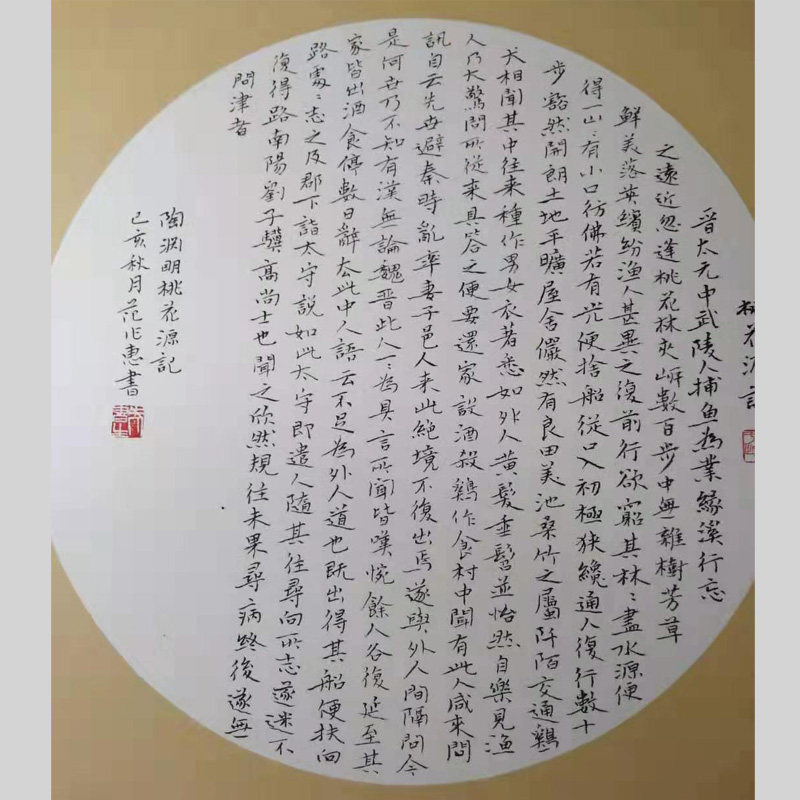 桃花源記
晉太元中武陵人捕鱼為業緣溪行忘
之遠近忽逢桃花林夾岍數百步中無雜樹芳草
鮮美落英繽紛漁人甚異之復前行欲窮其林〻盡水源便
得一山〻有小口彷佛若有光便捨船從口入初極狹纔通人復行數十
步豁然開朗土地平曠屋舍儼然有良田美池桑竹之屬阡陌交通鷄
犬相聞其中往来種作男女衣著悉如外人黄髮垂髫並怡然自樂見漁
人乃大驚問所從来具答之便要還家設酒殺鷄作食村中聞有此人咸来問
訊自云先世避秦時亂率妻子邑人来此絶境不復出焉遂與外人間隔問今
是何世乃不知有漢無論魏晋此人一一為具言所聞皆嘆惋餘人各復延至其
家皆出酒食停數日辭去此中人語云不足為外人道也既出得其船便扶向
路處〻志之及郡下詣太守說如此太守即遣人隨其往尋向所志遂迷不
復得路南陽劉子驥高尚士也聞之欣然規往未果尋病終後遂無
問津者
陶淵明桃花源記
己亥秋月范作惠書